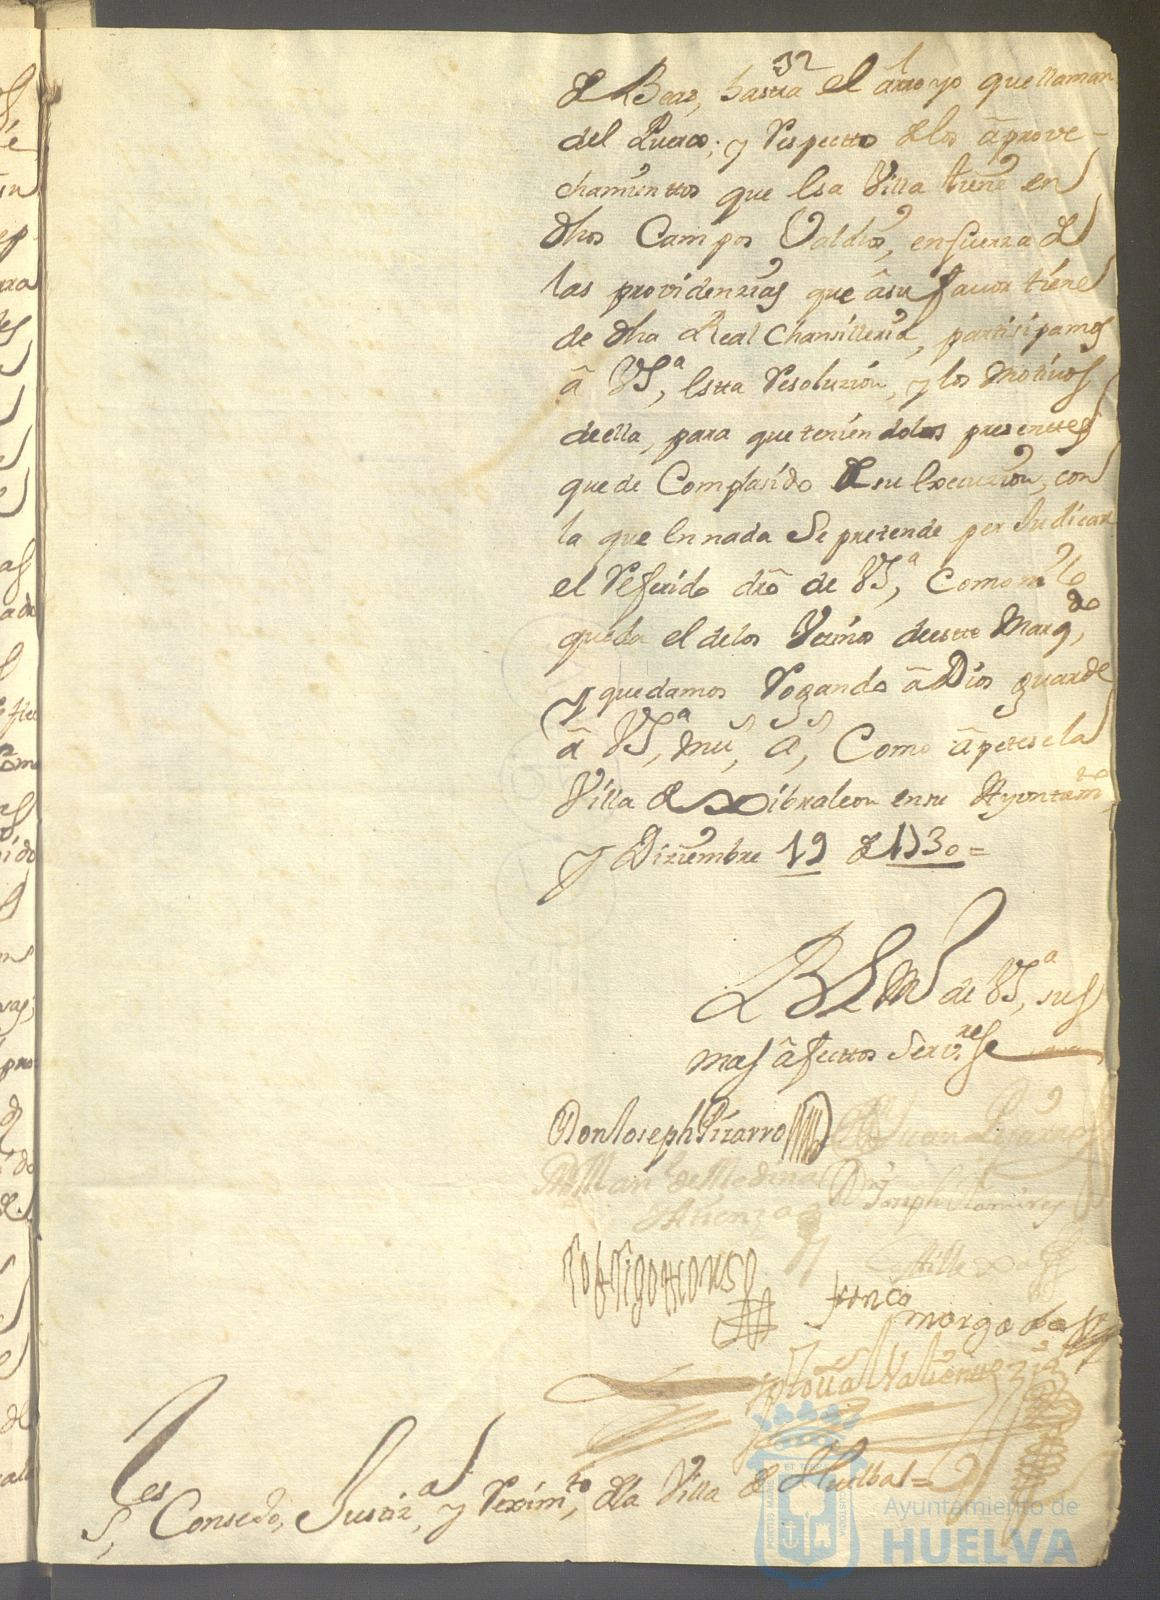 32
de Beas, hasta el arroyo que llaman
del Puerco; y respecto de los aprove-
chamientos que esa Villa tiene en
dhos Campos Valdios, en fuerza de
las providenzias que â su favor tiene
de dha Real Chansilleria, partisipamos
â VSª, esta resoluzion, y los motivos
de ella, para que teniendolos presentes
quede Complasido de su execuzion, con
la que en nada se pretende perjudicar
el referido dro de VSª, Como no lo
queda el de los Vezinos de este Marqdo,
y quedamos rogando â Dios guarde
â VSª, ms, as, Como apetese la
Villa de Xibraleon en su Ayuntamto
y Diziembre 19 de 1730=
B L M de VSª, sus
mas afectos Servres
Don Joseph Pizarro
Marn de Medina Dn Joseph Ramires
Atienza
Castilla
Rodrigo
franco
morgado
Thomas Valiente
Ses
S, Consejo, Justizª, y reximto, de la Villa de Huelba=
Ayuntamiento de
HUELVA